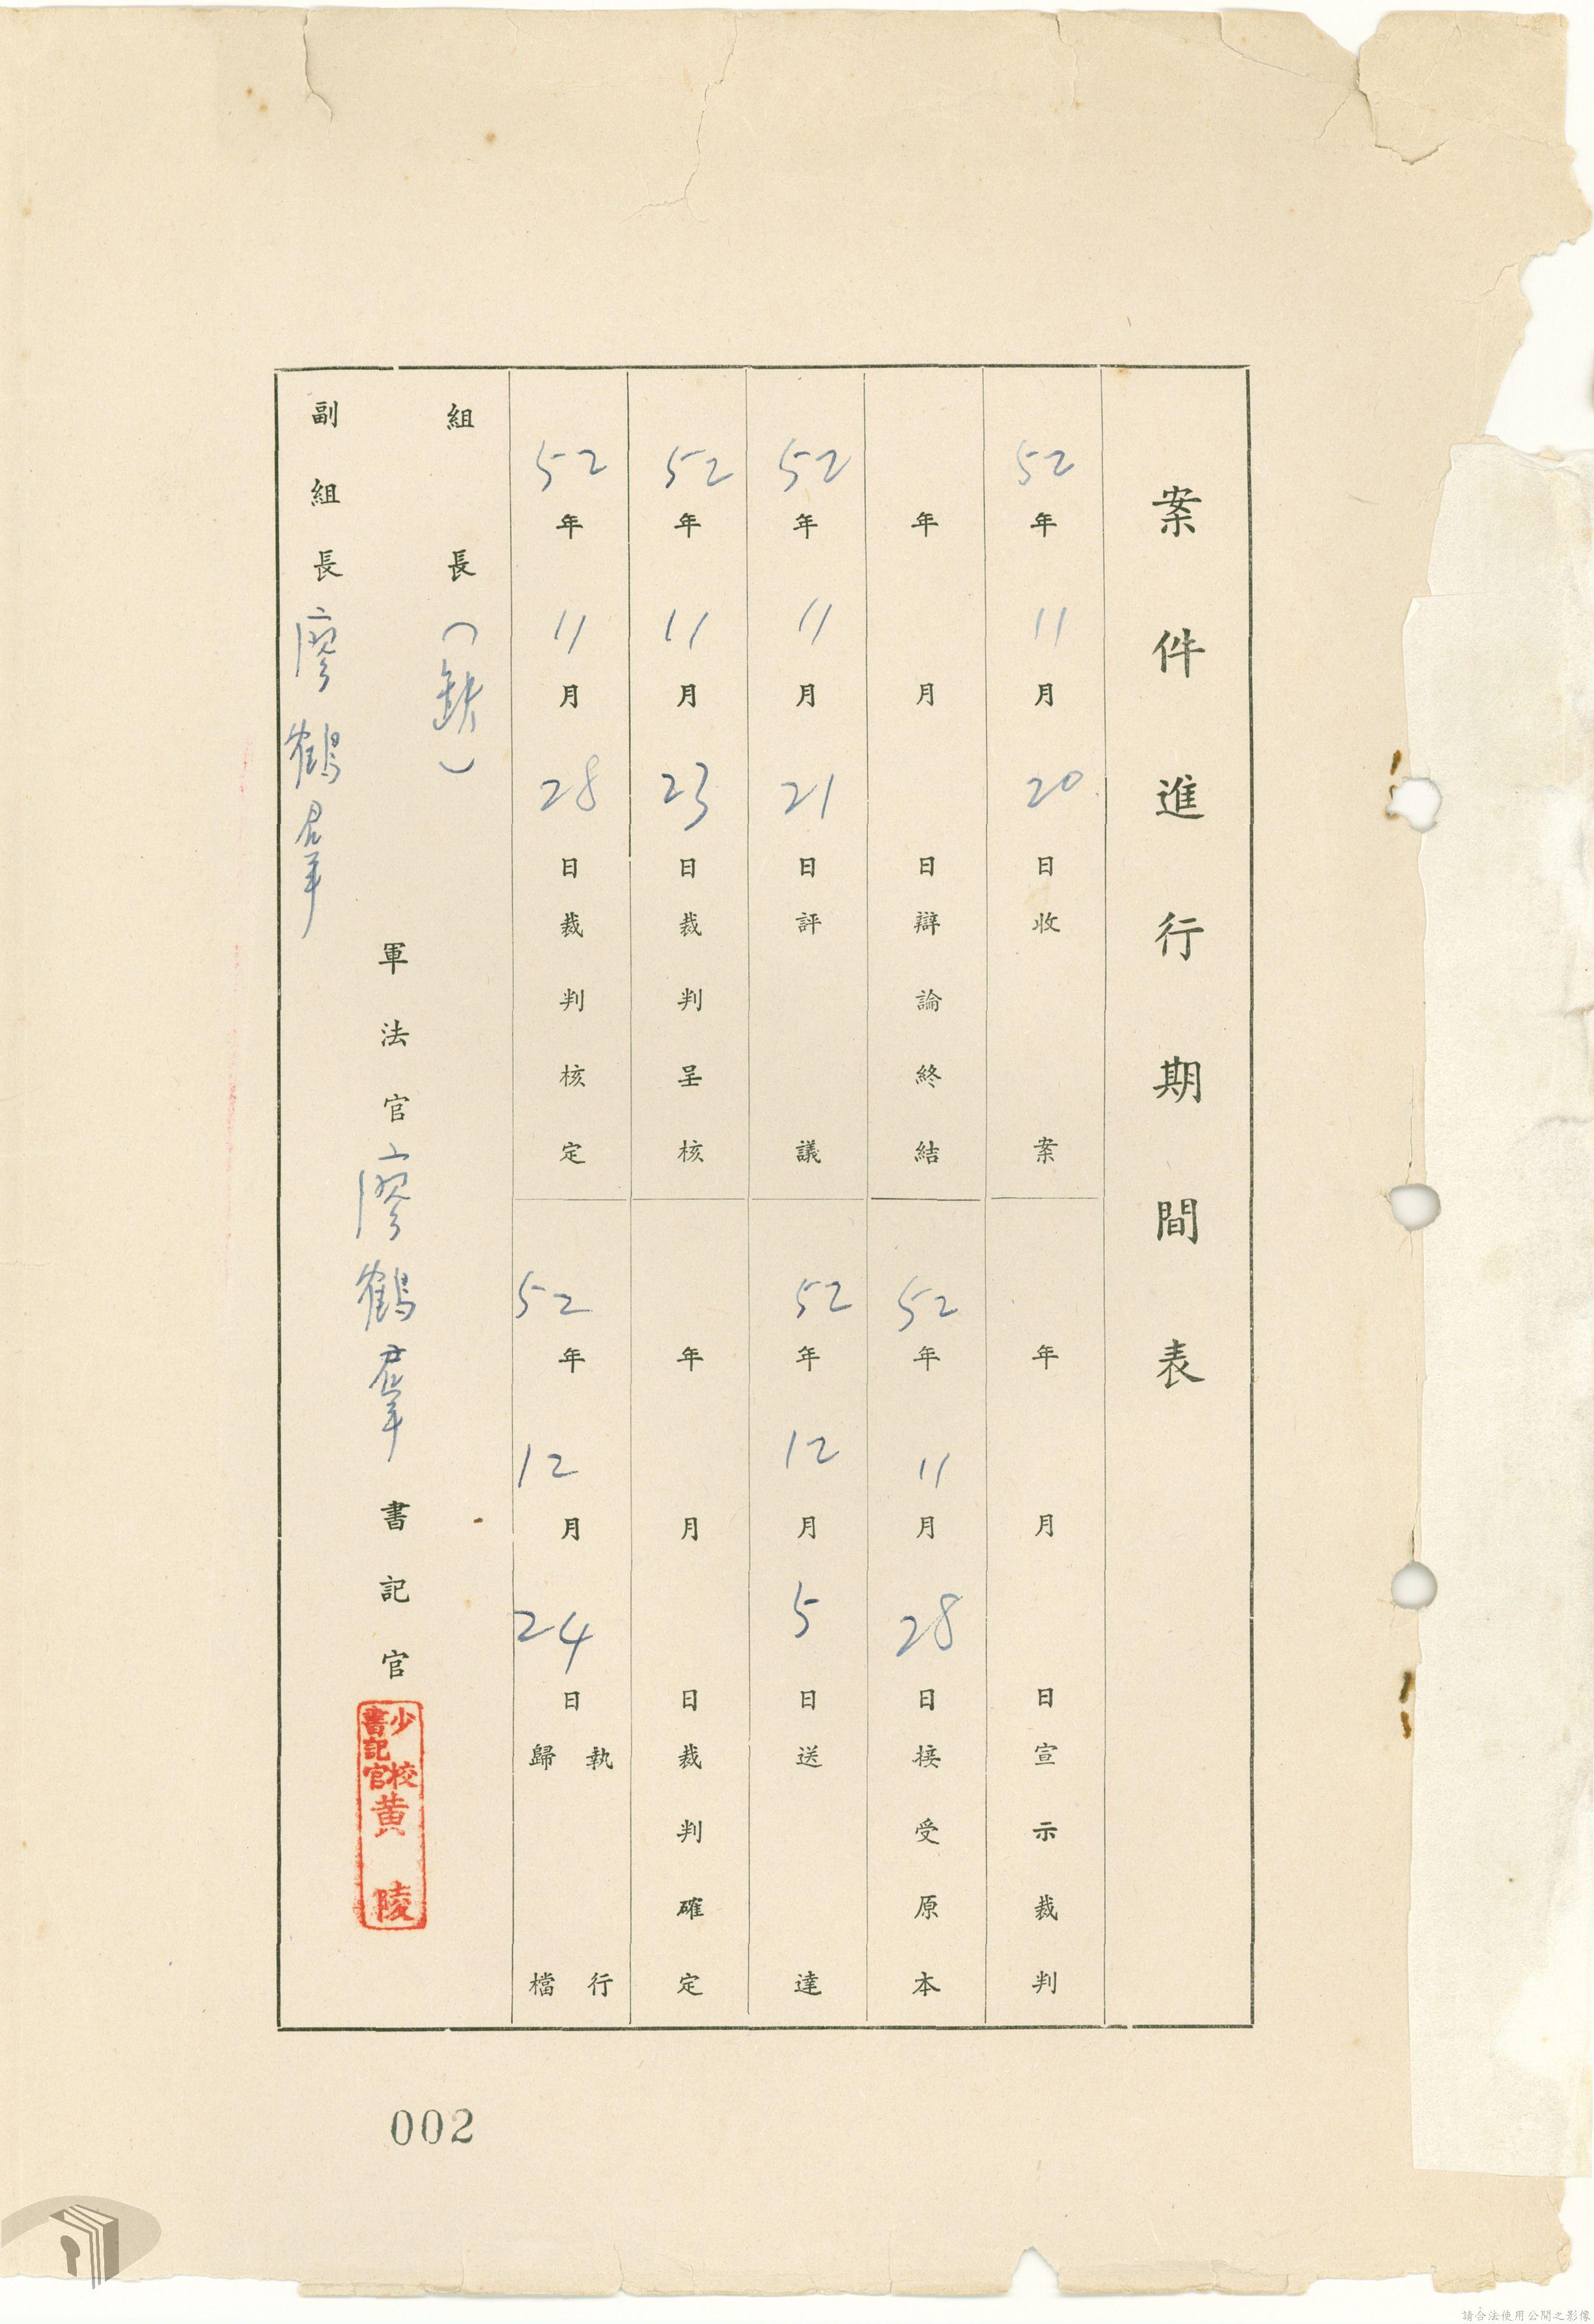 案件進行期間表
52年11月20日收案
年月日宣示裁判
年月日辯論終結
52年11月28日接受原本
52年11月21日評議
52年12月5日送達
52年11月23日裁判呈核
年月日裁判確定
52年11月28日裁判核定
52年12月24日執行歸檔
組長(缺)
軍法官廖鶴羣
書記官
少校書記官黃陵
副組長廖鶴羣
002
請合法使用公開之影像